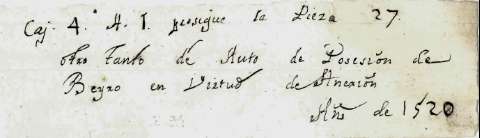 Caj. 4. A. 1. prosigue la Pieza 27.
otro tanto de Auto de Posesión de
Beyro en Virtud de Anexión
Año de 1520